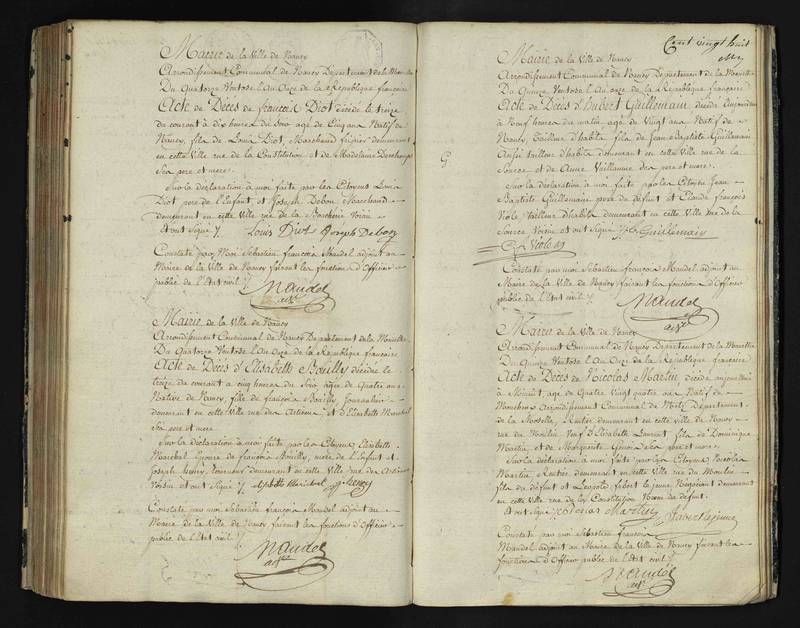 Mairie de la Ville de Nancy
Arrondissement Communal de Nancy Département de la Meurthe
Du Quatorze Ventose l'An Onze de la République française
Acte de Décès de françois Diot décédé le treize
du courant à dix heures du soir agé de Cinq ans Natif de
Nancy, fils de Louis Diot, Marchand fripier demeurant
en cette Ville rue de la Constitution et de Madelaine
Ses pere et mere
Sur la déclaration à moi faite par les Citoyens Louis
Diot pere de l'Enfant et Joseph Debon Marchand
demeurant en cette Ville rue de la Boucherie Voisin
et ont Signé /. Louis Diot Joseph Debon
Constaté par Moi Sébastien françois Mandel adjoint au
Maire de la Ville de Nancy faisant les fonctions d'Officier
public de l'Etat civil /.
Mandel
adjt
Mairie de la Ville de Nancy
Arrondissement Communal de Nancy Département de la Meurthe
Du Quatorze Ventose l'An Onze de la République francaise
Acte de Décès d'Elisabeth Bouilly décédée le
treize du courant à cinq heures du Soir agée de Quatre ans
Native de Nancy, fille de françois Bouilly, Journalier
demeurant en cette Ville rue des Artisans, et d'Elisabeth Marchal
Ses pere et mere
Sur la déclaration à moi faite par les Citoyens Elisabeth
Marchal Epouse de françois Bouilly, mere de l'Enfant et
Joseph henry, tourneur demeurant en cette Ville rue des Artisans
Voisin et ont Signé /. Elsabette Marichal J henry
Constaté par moi Sébastien françois Mandel adjoint au
Maire de la Ville de Nancy faisant les fonctions d'Officier
public de l'Etat civil /.
Mandel
adjt
Cent vingt huit
Mairie de la Ville de Nancy
Arrondissement Communal de Nancy Département de la Meurthe
Du Quinze Ventose l'An onze de la République française
Acte de Décès d'Hubert Guillemain décédé Aujourdhui
à Neuf heures du matin agé de Vingt ans Natif de
Nancy, Tailleur d'habits fils de Jean Baptiste Guillemain
Aussi tailleur d'habits demeurant en cette Ville rue de la
Source et de Anne Vuillaume Ses pere et mere
Sur la déclaration à moi faite par les Citoyens Jean
Baptiste Guillemain pere du défunt et Claude françois
Viole tailleur d'habits demeurant en cette Ville rue de la
G
Source Voisin et ont Signé /. Guillemain
C f Violes
Constaté par moi Sébastien françois Mandel adjoint au
Maire de la Ville de Nancy faisant les fonctions d'Officier
public de l'Etat civil /.
Mandel
adjt
Mairie de la Ville de Nancy
Arrondissement Communal de Nancy Département de la Meurthe
Du Quinze Ventose l'An Onze de la République française
Acte de Décès de Nicolas Martin, décédé aujourdhui
à Minuit, agé de Quatre Vingt quatre ans Natif de
Arrondissement Communal de Metz Département
de la Moselle, Rentier demeurant en cette Ville de Nancy
rue du Moulin, Veuf d'Elisabeth Laurent fils de Dominique
Martin, et de Marguerite Ses pere et mere
Sur la déclaration à moi faite par les Citoyens Nicolas
Martin Rentier demeurant en cette Ville rue du Moulin
fils du défunt et Léopold fabert le jeune Négociant demeurant
en cette Ville rue de la Constitution Neveu du défunt
et ont Signé /. Nicolas Martin L fabert le jeune
Constaté par moi Sébastien françois
Mandel adjoint au Maire de la Ville de Nancy faisant les
fonctions d'Officier public de l'Etat civil /.
Mandel
adjt